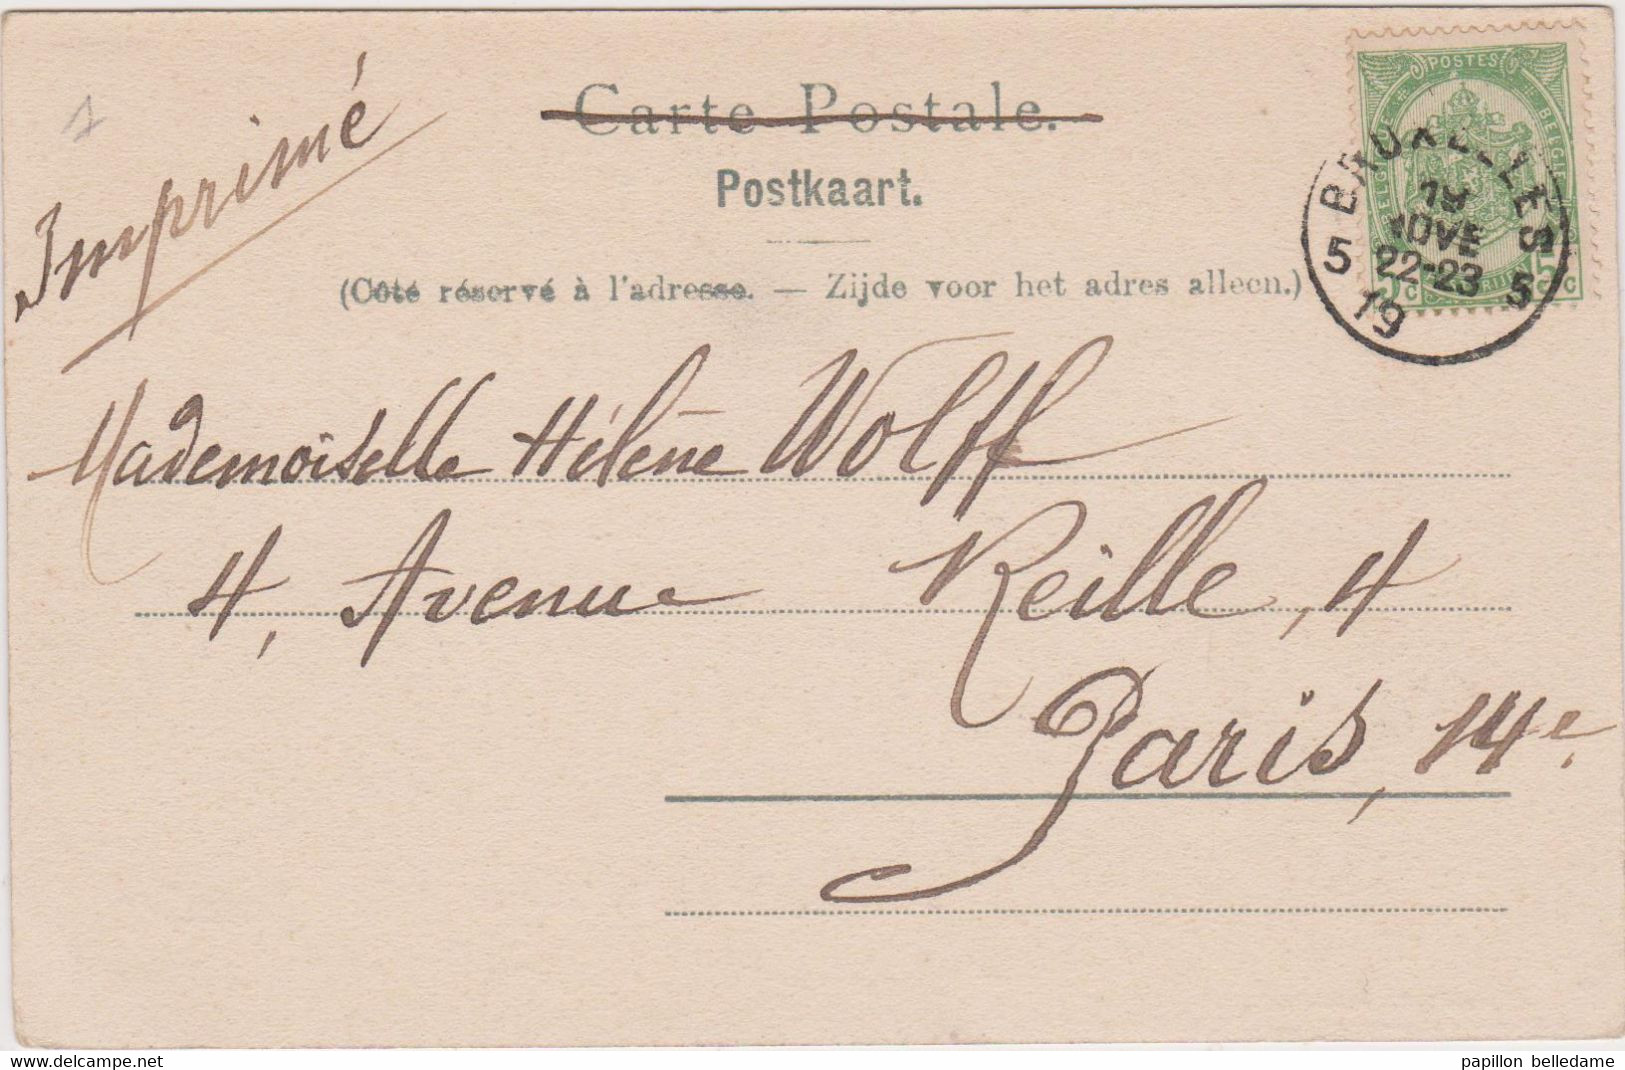 1
Imprimé
Carte Postale.
Postkaart.
(Côté réservé à l'adresse. — Zijde voor het adres alleen.)
POSTES
BELGIQUE BELGIË
5 c 5 c
BRUXELLES
19
NOVE
22-23
5 5
19
Mademoiselle Hélène Wolff
4, Avenue Reille, 4
Paris, 14e.
www.delcampe.net
papillon belledame